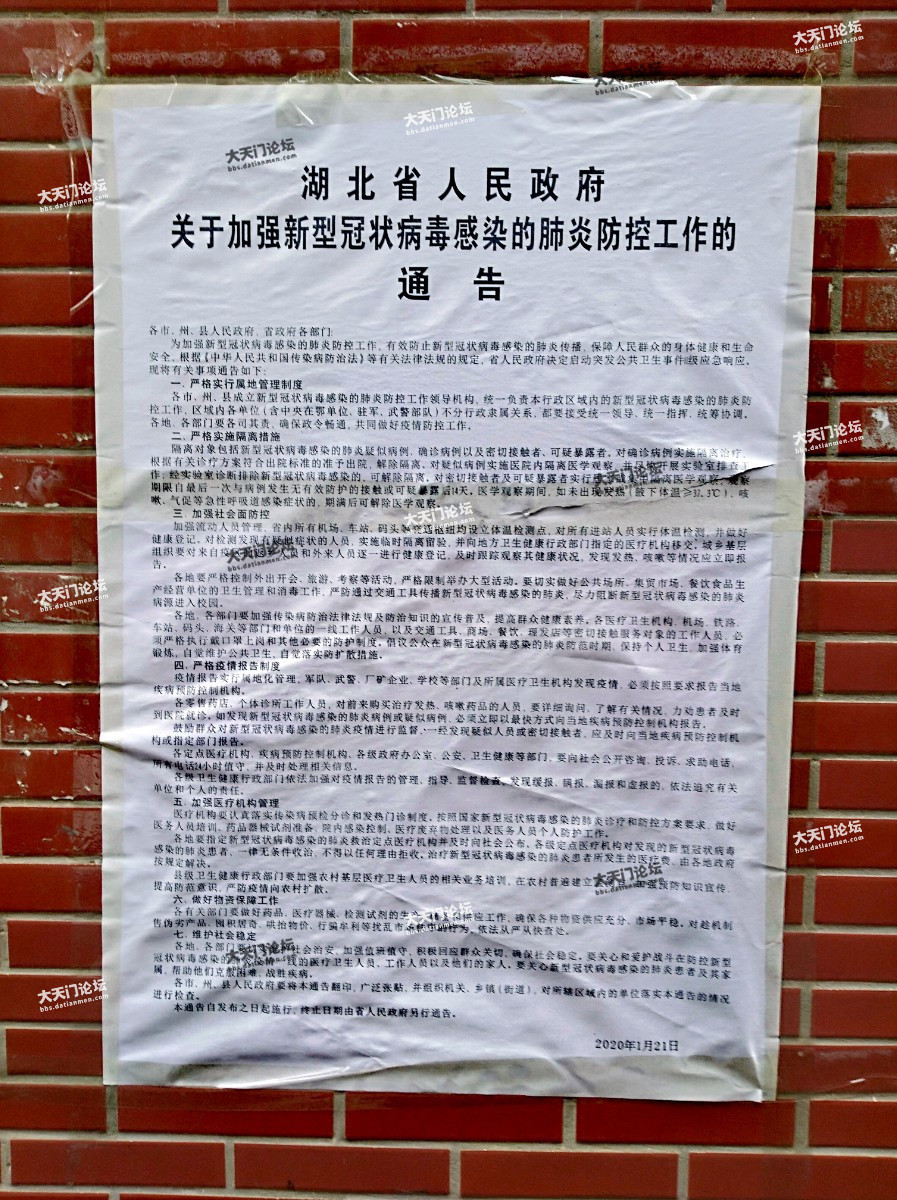 湖北省人民政府
关于加强新型冠状病毒感染的肺炎防控工作的
通告
各市、州、县人民政府，省政府各部门：
为加强新型冠状病毒感染的肺炎防控工作，有效防止新型冠状病毒感染的肺炎传播，保障人民群众的身体健康和生命
安全，根据《中华人民共和国传染病防治法》等有关法律法规的规定，省人民政府决定启动突发公共卫生事件Ⅱ级应急响应。
现将有关事项通告如下：
一、严格实行属地管理制度
各市、州、县成立新型冠状病毒感染的肺炎防控工作领导机构，统一负责本行政区域内的新型冠状病毒感染的肺炎防
控工作，区域内各单位（含中央在鄂单位、驻军、武警部队）不分行政隶属关系，都要接受统一领导、统一指挥、统筹协调。
各地、各部门要各司其责，确保政令畅通，共同做好疫情防控工作。
二、严格实施隔离措施
隔离对象包括新型冠状病毒感染的肺炎疑似病例、确诊病例以及密切接触者、可疑暴露者。对确诊病例实施隔离治疗，
根据有关诊疗方案符合出院标准的准予出院，解除隔离。对疑似病例实施医院内隔离医学观察，并尽快开展实验室排查工
作；经实验室诊断排除新型冠状病毒感染的，可解除隔离。对密切接触者及可疑暴露者实行居家或集中隔离医学观察，观察
期限自最后一次与病例发生无有效防护的接触或可疑暴露后14天。医学观察期间，如未出现发热（腋下体温≥37.3℃）、咳
嗽、气促等急性呼吸道感染症状的，期满后可解除医学观察。
三、加强社会面防控
加强流动人员管理，省内所有机场、车站、码头等交通枢纽均设立体温检测点，对所有进站人员实行体温检测，并做好
健康登记。对检测发现有疑似症状的人员，实施临时隔离留验，并向地方卫生健康行政部门指定的医疗机构移交。城乡基层
组织要对来自疫区的返乡人员和外来人员逐一进行健康登记，及时跟踪观察其健康状况，发现发热、咳嗽等情况应立即报
告。
各地要严格控制外出开会、旅游、考察等活动，严格限制举办大型活动。要切实做好公共场所、集贸市场、餐饮食品生
产经营单位的卫生管理和消毒工作，严防通过交通工具传播新型冠状病毒感染的肺炎，尽力阻断新型冠状病毒感染的肺炎
病源进入校园。
各地、各部门要加强传染病防治法律法规及防治知识的宣传普及，提高群众健康素养。各医疗机构、机场、铁路、
车站、码头、海关等部门和单位的一线工作人员，以及交通工具、商场、餐饮、理发店等密切接触服务对象的工作人员，必
须严格执行戴口罩上岗和其他必要的防护制度。倡议公众在新型冠状病毒感染的肺炎防范时期，保持个人卫生，加强体育
锻炼，自觉维护公共卫生，自觉落实防扩散措施。
四、严格疫情报告制度
疫情报告实行属地化管理，军队、武警、厂矿企业、学校等部门及所属医疗卫生机构发现疫情，必须按照要求报告当地
疾病预防控制机构。
各零售药店、个体诊所工作人员，对前来购买治疗发热、咳嗽药品的人员，要详细询问，了解有关情况，力动患者及时
到医院就诊。如发现新型冠状病毒感染的肺炎病例或疑似病例，必须立即以最快方式向当地疾病预防控制机构报告。
鼓励群众对新型冠状病毒感染的肺炎疫情进行监督，一经发现疑似人员或密切接触者，应及时向当地疾病预防控制机
构或指定部门报告。
各定点医疗机构、疾病预防控制机构、各级政府办公室、公安、卫生健康等部门，要向社会公开咨询、投诉、求助电话，
所有电话24小时值守，并及时处理相关信息。
各级卫生健康行政部门依法加强对疫情报告的管理、指导、监督检查，发现缓报、瞒报、漏报和虚报的，依法追究有关
单位和个人的责任。
五、加强医疗机构管理
医疗机构要认真落实传染病预检分诊和发热门诊制度，按照国家新型冠状病毒感染的肺炎诊疗和防控方案要求，做好
医务人员培训、药品器械试剂准备、院内感染控制、医疗废弃物处理以及医务人员个人防护工作。
各地要指定新型冠状病毒感染的肺炎救治定点医疗机构并及时向社会公布，各级定点医疗机构对发现的新型冠状病毒
感染的肺炎患者，一律无条件收治，不得以任何理由拒收。治疗新型冠状病毒感染的肺炎患者所发生的医疗费，由各地政府
按规定解决。
县级卫生健康行政部门要加强农村基层医疗卫生人员的相关业务培训，在农村普遍建立 加强预防知识宣传，
提高防范意识，严防疫情向农村扩散。
六、做好物资保障工作
各有关部门要做好药品、医疗器械、检测试剂的生产 供应工作，确保各种物资供应充分、市场平稳。对趁机制
售伪劣产品、囤积居奇、哄抬物价、行骗牟利等扰乱市场秩序的行为，依法从严从快查处。
七、维护社会稳定
各地、各部门要 社会治安，加强值班值守，积极回应群众关切，确保社会稳定。要关心和爱护战斗在防控新型
冠状病毒感染的肺炎疫情一线的医疗卫生人员、工作人员以及他们的家人。要关心新型冠状病毒感染的肺炎患者及其家
属，帮助他们克服困难，战胜疾病。
各市、州、县人民政府要将本通告翻印，广泛张贴，并组织机关、乡镇（街道），对所辖区域内的单位落实本通告的情况
进行检查。
本通告自发布之日起施行，终止日期由省人民政府另行通告。
2020年1月21日
大天门论坛
bbs.datianmen.com